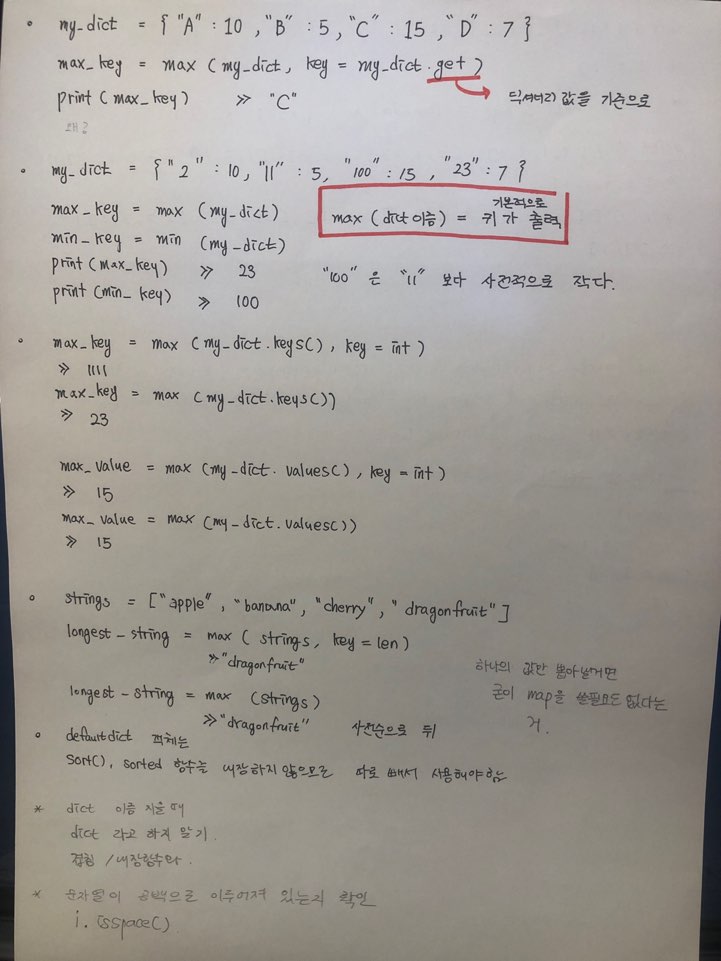 • my_dict = { "A" : 10 , "B" : 5 , "C" : 15 , "D" : 7 }
max_key = max ( my_dict, key = my_dict.get )
→ 딕셔너리 값을 기준으로
print ( max_key ) >> "C"
왜?
• my_dict = { " 2 " : 10 , "11" : 5 , "100" : 15 , "23" : 7 }
max_key = max (my_dict)
기본적으로
max ( dict이름 ) = 키가 출력
min_key = min (my_dict)
print (max_key) >> 23
"100" 은 "11" 보다 사전적으로 작다.
print (min_key) >> 100
• max_key = max ( my_dict.keys( ) , key = int )
>> 1111
max_key = max ( my_dict.keys( ))
>> 23
max_value = max (my_dict. values( ) , key = int )
>> 15
max_value = max (my_dict.values( ))
>> 15
• strings = [ "apple" , "banana" , "cherry" , " dragonfruit" ]
longest-string = max ( strings, key = len )
>> "dragonfruit"
하나의 값만 뽑아낼거면
굳이 map을 쓸필요도 없다는
거.
longest-string = max (strings)
>> "dragonfruit" 사전순으로 뒤
• defaultdict 객체는
sort( ), sorted 함수를 내장하지 않으므로 따로 빼서 사용해야함
* dict 이름 지을 때
dict 라고 하지 말기.
겹침 / 내장함수와.
* 문자열이 공백으로 이루어져 있는지 확인
i. isspace( )